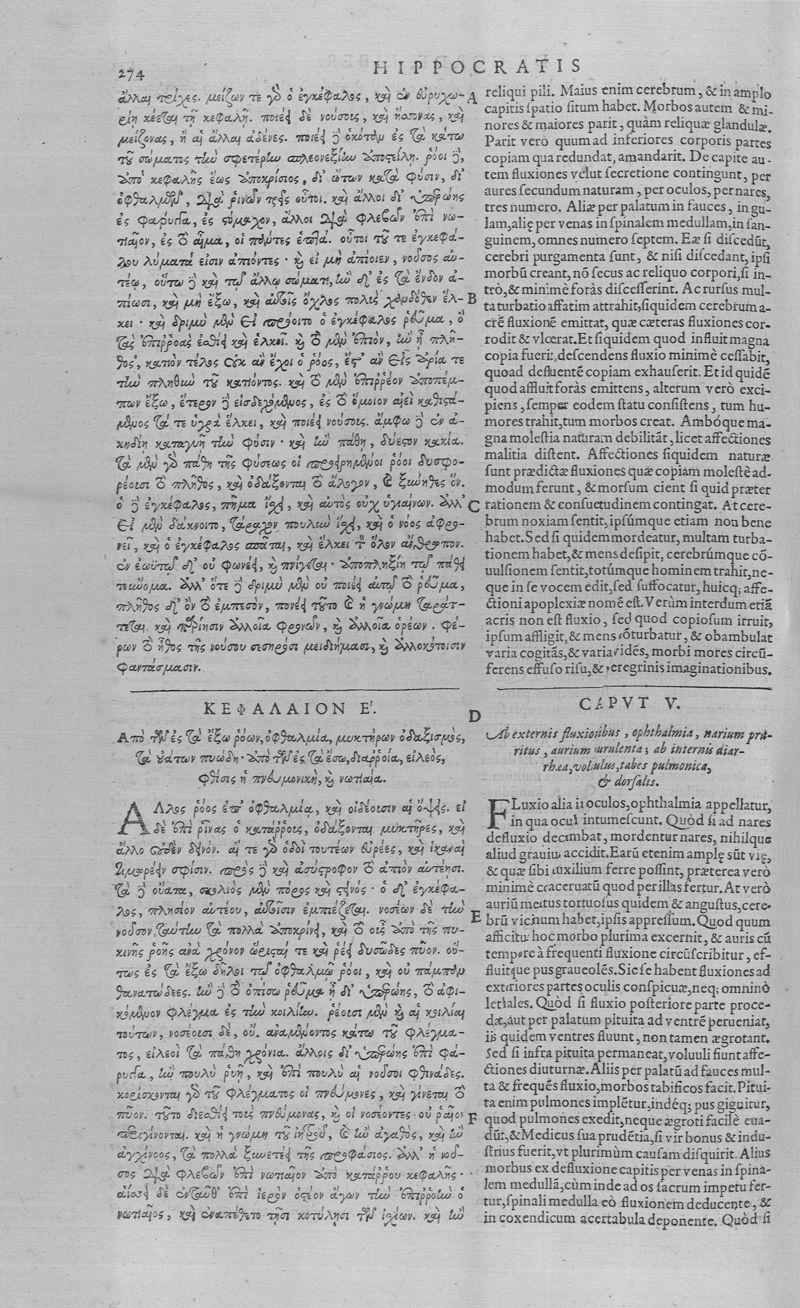 274
HIPPOCRATIS
ἄλλαι τρίχες. μείζων τε γὰρ ὁ ἐγκέφαλος, καὶ ἐν εὐρυχω-
ρίῃ κέεται τῇ κεφαλῇ. ποιέει δὲ νούσους, καὶ ἥσσονας, καὶ
μείζονας, ἢ αἱ ἄλλαι ἀδένες. ποιέει δὲ ὁκόταν ἐς τὰ κάτω
τοῦ σώματος τὴν σφετέρην πλεονεξίην ἀποστείλῃ. ῥόοι δὲ,
ἀπὸ κεφαλῆς ἕως ἀποκρίσιος, δι' ὤτων κατὰ φύσιν, δι'
ὀφθαλμῶν, διὰ ῥινῶν τρεῖς οὗτοι. καὶ ἄλλοι δι' ὑπερῴης
ἐς φάρυγγα, ἐς στόμαχον, ἄλλοι διὰ φλεβῶν ἐπὶ νω-
τιαῖον, ἐς τὸ αἷμα, οἱ πάντες ἑπτά. οὗτοι τοῦ τε ἐγκεφά-
λου λύματά εἰσιν ἀπιόντες· καὶ εἰ μὴ ἀπίοιεν, νοῦσος αὐ-
τέῳ, οὕτω δὲ καὶ τῷ ἄλλῳ σώματι, ἢν δ' ἐς τὰ ἔνδον ἀ-
πίωσι, καὶ μὴ ἔξω, καὶ αὖθις ὄχλος πολὺς ἕλ-
κει· καὶ δριμὺ μὲν εἰ προίοιτο ὁ ἐγκέφαλος ῥεῦμα, ὁ
τὰς ἐπιρροὰς ἐσθίει καὶ ἑλκοῖ. καὶ τὸ μὲν ἐπιὸν, ἢν ᾖ πλῆ-
θος, κατιὸν τέλος οὐκ ἂν ἔχοι ὁ ῥόος, ἔστ' ἂν
τὴν πληθὺν τοῦ κατιόντος. καὶ τὸ μὲν ἐπιρρέον ἀποπέμ-
πων ἔξω, ἕτερον δὲ εἰσδεχόμενος, ἐς τὸ ὅμοιον αἰεὶ καθιστά-
μενος τά τε ὑγρὰ ἕλκει, καὶ ποιέει νούσους. ἄμφω δὲ ἐν ἀ-
κηδίῃ καταγυῖ τὴν φύσιν· καὶ ἢν πάθῃ, δύ' ἐστὸν κακία.
τὰ μὲν γὰρ πάθη τῆς φύσεως οἱ προειρημένοι ῥόοι δυσφο-
ρέουσι τὸ πλῆθος, καὶ ὀδάξονται τὸ ἄλογον, καὶ ξύνηθες ὄν.
ὁ δὲ ἐγκέφαλος, πῆμα ἴσχει, καὶ αὐτὸς οὐχ ὑγιαίνων. ἀλλ'
εἰ μὲν δάκνοιτο, τάραχον πουλὺν ἴσχει, καὶ ὁ νόος ἀφρο-
νεῖ, καὶ ὁ ἐγκέφαλος σπᾶται, καὶ ἕλκει τὸν ὅλον ἄνθρωπον.
ἐν ἑωυτῷ δ' οὐ φωνέει, καὶ πνίγεται· ἀποπληξίη τῷ πάθει
τοὔνομα. ἄλλ' ὅτε δὲ δριμὺ μὲν οὐ ποιέει αὐτῷ τὸ ῥεῦμα,
πλῆθος δ' ὂν τὸ ἐμπεσὸν, πονέει τοῦτο καὶ ἡ γνώμη ταράτ-
τεται. καὶ περίεισιν ἀλλοῖα φρονέων, καὶ ἀλλοῖα ὁρέων. φέ-
ρων τὸ ἦθος τῆς νούσου σεσηρόσι μειδιήμασι, καὶ ἀλλοκότοισιν
φαντάσμασιν.
ΚΕΦΑΛΑΙΟΝ Ε΄.
Ἀπὸ τῶν ἐς τὰ ἔξω ῥόων, ὀφθαλμία, μυκτήρων ὀδαξισμὸς,
τὰ οὐάτων πυώδη· ἀπὸ τῶν ἐς τὰ ἔσω, διάρροια, εἰλεὸς,
φθίσις ἡ πνευμονικὴ, καὶ νωτιαία.
ΑΛλος ῥόος ἐπ' ὀφθαλμία, καὶ οἰδέουσιν αἱ ὄψεις. εἰ
δὲ ἐπὶ ῥῖνας ὁ κατάρροις, ὀδάξονται μυκτῆρες, καὶ
ἄλλο οὐδὲν δεινόν. αἵ τε γὰρ ὁδοὶ τουτέων εὐρέες, καὶ ἱκαναὶ
τιμωρέειν σφίσιν. πρὸς δὲ καὶ ἀσύστροφον τὸ ἀπιὸν αὐτέῃσι.
τὰ δὲ οὔατα, σκολιὸς μὲν πόρος καὶ στενός· ὁ δ' ἐγκέφα-
λος, πλησίον αὐτέου, αὐτοῖσιν ἐμπιέζεται. νοσέων δὲ τὴν
νοῦσον ταύτην τὰ πολλὰ ἀποκρίνει, καὶ τὸ οὖς ἀπὸ τῆς πυ-
κινῆς ῥοῆς ἀνὰ χρόνον ὥρισταί τε καὶ ῥέει δυσῶδες πῦον. οὕ-
τως ἐς τὰ ἔξω δῆλοι τῷ ὀφθαλμῷ ῥόοι, καὶ οὐ πάμπαν
θανατώδεες. ἢν δὲ τὸ ὀπίσω ῥεῦμα ἢ δι' ὑπερῴης, τὸ ἀφι-
κόμενον φλέγμα ἐς τὴν κοιλίην. ῥέουσι μὲν καὶ αἱ κοιλίαι
τούτων, νοσέουσι δὲ, οὔ. ἀναμένοντος κάτω τοῦ φλέγμα-
τος, εἰλεοὶ τὰ πάθη χρόνια. ἄλλοις δι' ὑπερῴης ἐπὶ φά-
ρυγγα, ἢν πουλὺ ῥυῇ, καὶ ἐπὶ πουλὺ αἱ νοῦσοι φθινάδες.
κορίσκονται γὰρ τοῦ φλέγματος οἱ πνεύμονες, καὶ γίνεται τὸ
πῦον. τοῦτο διεσθίει τοὺς πνεύμονας, καὶ οἱ νοσέοντες οὐ ῥᾷον
περιγίνονται. καὶ ἡ γνώμη τοῦ ἰητροῦ, καὶ ἢν ἀγαθὸς, καὶ ἢν
ἀγχίνοος, τὰ πολλὰ ξυνιέναι τῆς προφάσιος. ἀλλ' ἡ νοῦ-
σος διὰ φλεβῶν ἐπὶ νωτιαῖον ἀπὸ κατάρρου κεφαλῆς·
ἀΐσσει δὲ ἐντεῦθεν ἐπὶ ἱερὸν ὀστέον ἄγων τὴν ἐπιρροὴν ὁ
νωτιαῖος, καὶ ἐναπέθετο τῇσι κοτύλῃσι τῶν ἰσχίων. καὶ ἢν
A
B
C
D
E
F
reliqui pili. Maius enim cerebrum, & in amplo
capitis spatio situm habet. Morbos autem & mi-
nores & maiores parit, quàm reliquæ glandulæ.
Parit verò quum ad inferiores corporis partes
copiam quæ redundat, amandarit. De capite au-
tem fluxiones velut secretione contingunt, per
aures secundum naturam, per oculos, per nares,
tres numero. Aliæ per palatum in fauces, in gu-
lam, alię per venas in spinalem medullam, in san-
guinem, omnes numero septem. Eæ si discedūt,
cerebri purgamenta sunt, & nisi discedant, ipsi
morbū creant, nō secus ac reliquo corpori, si in-
trò, & minimè foràs discesserint. Ac rursus mul-
ta turbatio affatim attrahit, siquidem cerebrum a-
crē fluxionē emittat, quæ cæteras fluxiones cor-
rodit & vlcerat. Et siquidem quod influit magna
copia fuerit, descendens fluxio minimè cessabit,
quoad defluentē copiam exhauserit. Et id quidē
quod affluit foràs emittens, alterum verò exci-
piens, semper eodem statu consistens, tum hu-
mores trahit, tum morbos creat. Ambóque ma-
gna molestia naturam debilitāt, licet affectiones
malitia distent. Affectiones siquidem naturæ
sunt prædictæ fluxiones quæ copiam molestè ad-
modum ferunt, & morsum cient si quid præter
rationem & consuetudinem contingat. At cere-
brum noxiam sentit, ipsúmque etiam non bene
habet. Sed si quidem mordeatur, multam turba-
tionem habet, & mens desipit, cerebrúmque cō-
uulsionem sentit, totúmque hominem trahit, ne-
que in se vocem edit, sed suffocatur, huicq; affe-
ctioni apoplexiæ nomē est. Verùm interdum etiā
acris non est fluxio, sed quod copiosum irruit,
ipsum affligit, & mens cōturbatur, & obambulat
varia cogitās, & varia vidēs, morbi mores circū-
ferens effuso risu, & peregrinis imaginationibus.
CAPVT V.
Ab externis fluxionibus, ophthalmia, narium pru-
ritus, aurium purulenta; ab internis diar-
rhæa, voluulus, tabes pulmonica,
& dorsalis.
FLuxio alia in oculos, ophthalmia appellatur,
in qua oculi intumescunt. Quòd si ad nares
defluxio decumbat, mordentur nares, nihilque
aliud grauius accidit. Earū etenim amplę sūt vię,
& quæ sibi auxilium ferre possint, præterea verò
minimè coaceruatū quod per illas fertur. At verò
auriū meatus tortuosus quidem & angustus, cere-
brū vicinum habet, ipsis appressum. Quod quum
afficitur hoc morbo plurima excernit, & auris cū
tempore à frequenti fluxione circūscribitur, ef-
fluitque pus graueolēs. Sic se habent fluxiones ad
exteriores partes oculis conspicuæ, neq; omnino
letiales. Quòd si fluxio posteriore parte proce-
dat, aut per palatum pituita ad ventrē perueniat,
iis quidem ventres fluunt, non tamen ægrotant.
Sed si infra pituita permaneat, voluuli fiunt affe-
ctiones diuturnæ. Aliis per palatū ad fauces mul-
ta & frequēs fluxio, morbos tabificos facit. Pitui-
ta enim pulmones implētur, indéq; pus gignitur,
quod pulmones exedit, neque ægroti facilè eua-
dūt, & Medicus sua prudētia, si vir bonus & indu-
strius fuerit, vt plurimùm causam disquirit. Alius
morbus ex defluxione capitis per venas in spina-
lem medullā, cùm inde ad os sacrum impetu fer-
tur, spinali medulla eò fluxionem deducente, &
in coxendicum acetabula deponente. Quòd si